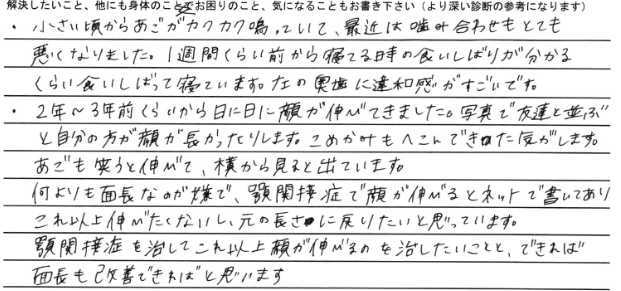 解決したいこと、他にも身体のことでお困りのこと、気になることもお書き下さい（より深い診断の参考になります）
・小さい頃からあごがカクカク鳴っていて、最近は噛み合わせもとても
悪くなりました。1週間くらい前から寝てる時の食いしばりが分かる
くらい食いしばって寝ています。左の奥歯に違和感がすごいです。
・2年〜3年前くらいから日に日に顔が伸びてきました。写真で友達と並ぶ
と自分の方が顔が長かったりします。こめかみもへこんできた気がします。
あごも笑うと伸びて、横から見ると出ています。
何よりも面長なのが嫌で、顎関接症で顔が伸びるとネットで書いてあり
これ以上伸びたくないし、元の長さに戻りたいと思っています。
顎関接症を治してこれ以上顔が伸びるのを治したいことと、できれば
面長も改善できればと思います